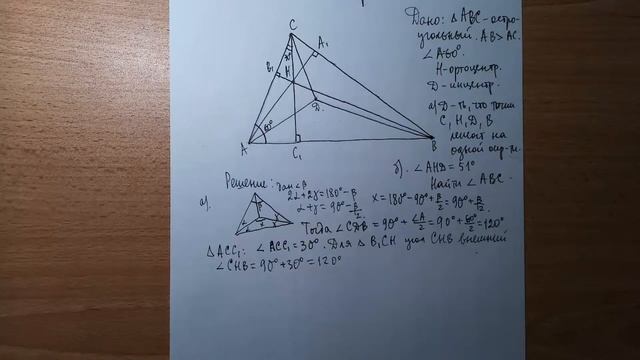 Дано: △ABC - остро-
угольный. AB > AC.
∠A=60°.
H-ортоцентр.
D-инцентр.
а) Д-ть, что точки
C, H, D, B
лежат на
одной окр-ти.
б). ∠AHD = 51°
Найти ∠ABC.
C
A₁
B₁
H
60°
D
A
C₁
B
Решение:
а).
2α+2γ=180°-β
α+γ=90°-β/2
x=180°-90°+β/2=90°+β/2.
Тогда ∠CDB=90°+∠A/2=90°+60°/2=120°
△ACC₁: ∠ACC₁=30°. Для △B₁CH угол CHB внешний
∠CHB=90°+30°=120°